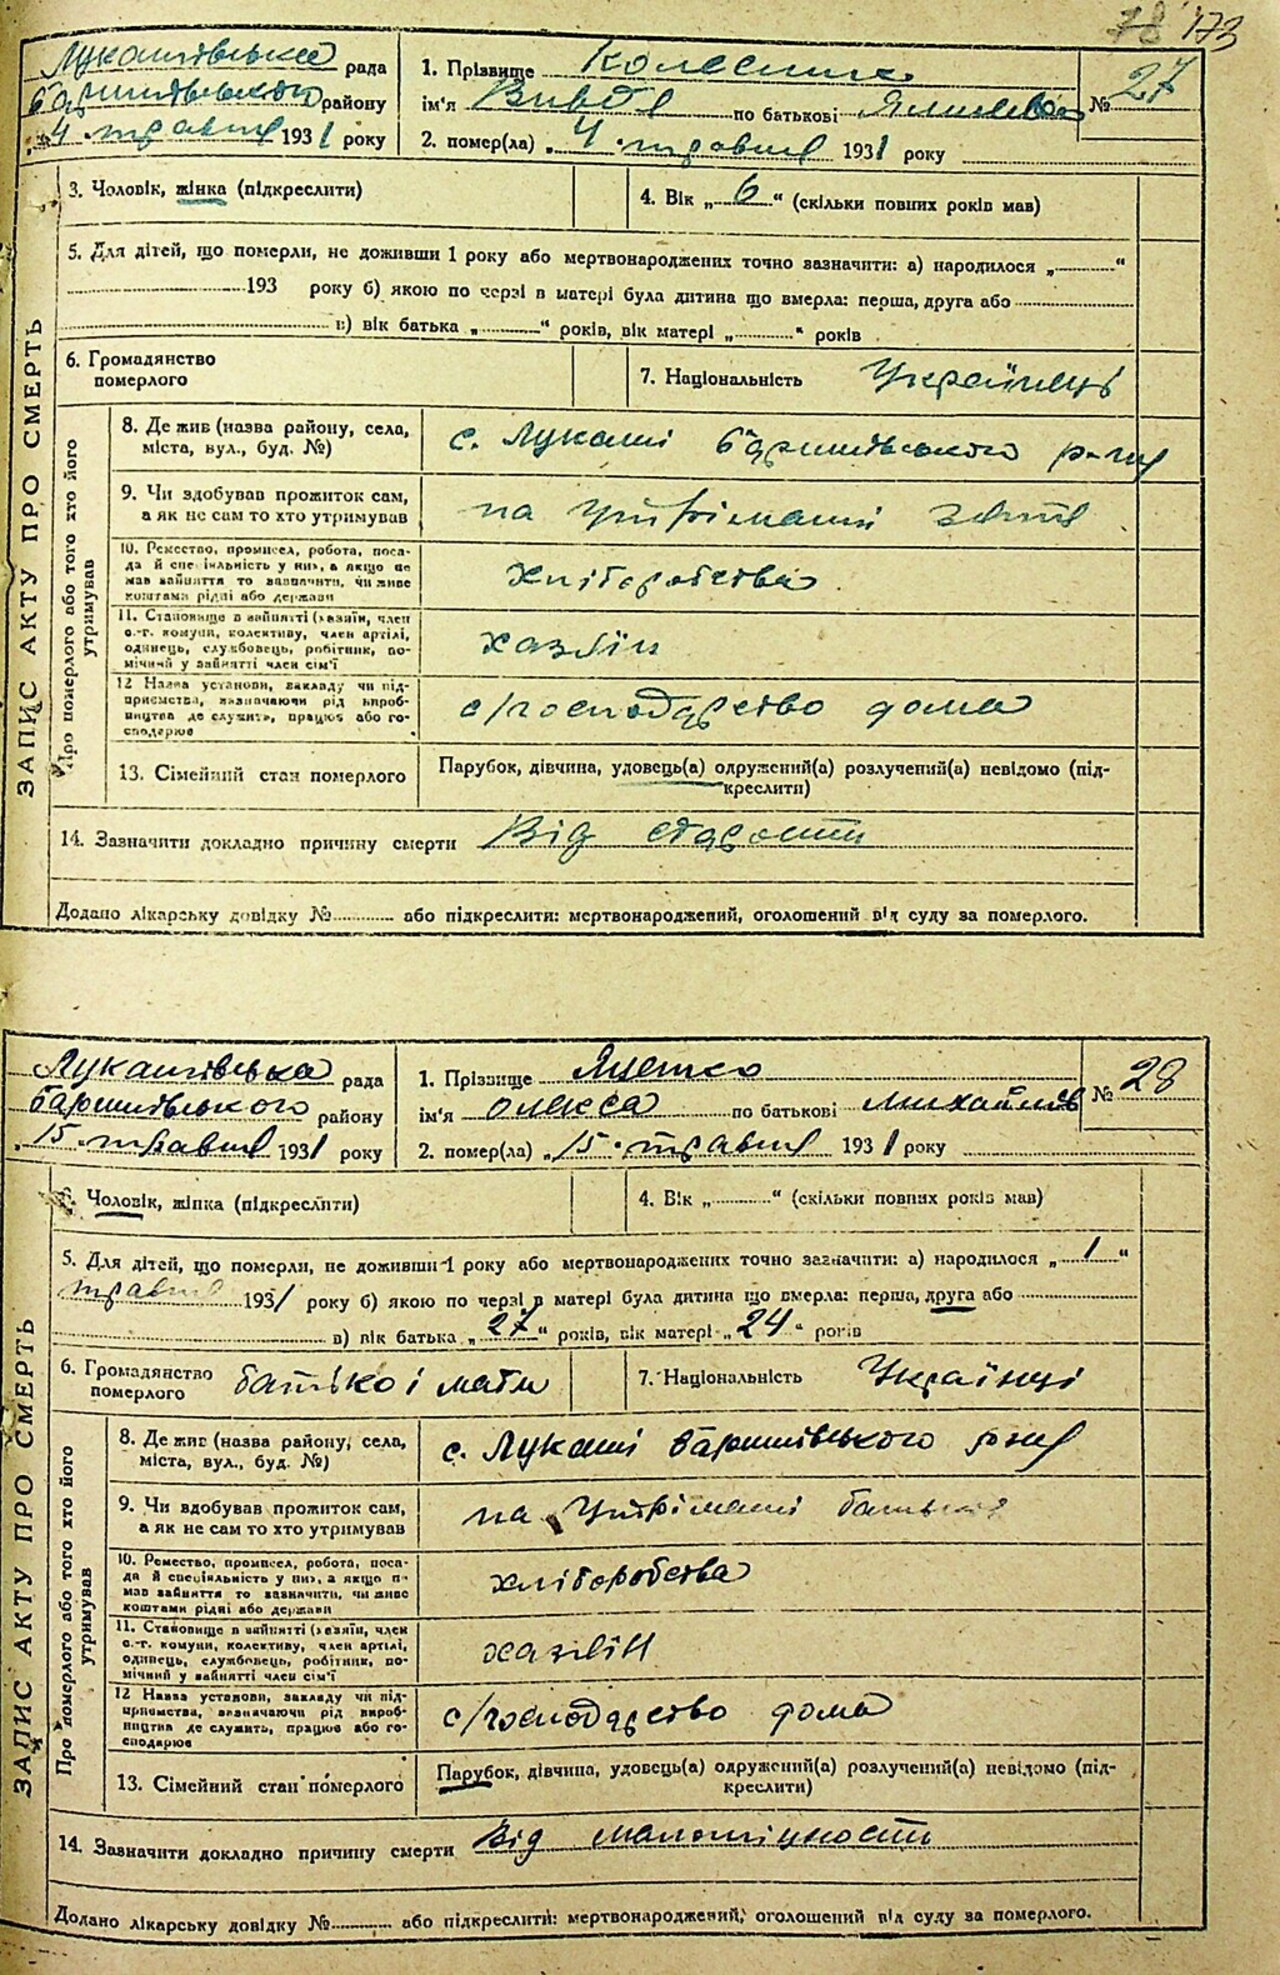 78 173
Лукашівська рада
Баришівського району
"4" травня 1931 року
1. Прізвище Колесник
ім'я по батькові
2. помер(ла) "4" травня 1931 року
№ 27
3. Чоловік, жінка (підкреслити)
4. Вік „6“ (скільки повних років мав)
5. Для дітей, що померли, не доживши 1 року або мертвонароджених точно зазначити: а) народилося „ “
193 року б) якою по черзі в матері була дитина що вмерла: перша, друга або
в) вік батька „ “ років, вік матері „ “ років
6. Громадянство
померлого
7. Національність Українці
ЗАПИС АКТУ ПРО СМЕРТЬ
Про померлого або того хто його
утримував
8. Де жив (назва району, села,
міста, вул., буд. №)
с. Лукаші Баришівського р-ну
9. Чи здобував прожиток сам,
а як не сам то хто утримував
на утріманні зятя
10. Ремество, промисел, робота, поса-
да й спеціяльність у них, а якщо не
мав зайняття то зазначити, чи живе
коштами рідні або держави
хліборобства
11. Становище в зайнятті (хазяїн, член
с.-г. комуни, колективу, член артілі,
одинець, службовець, робітник, по-
мічний у зайнятті член сім'ї
хазяїн
12 Назва установи, закладу чи під-
приємства, зазначаючи рід вироб-
ництва де служить, працює або го-
сподарює
с/господарство дома
13. Сімейний стан померлого
Парубок, дівчина, удовець(а) одружений(а) розлучений(а) невідомо (під-
креслити)
14. Зазначити докладно причину смерти Від старости
Додано лікарську довідку № або підкреслити: мертвонароджений, оголошений від суду за померлого.
Лукашівська рада
Баришівського району
"15" травня 1931 року
1. Прізвище Яценко
ім'я Олекса по батькові Михайлов
2. помер(ла) „15" травня 1931 року
№ 28
3. Чоловік, жінка (підкреслити)
4. Вік „ “ (скільки повних років мав)
5. Для дітей, що померли, не доживши 1 року або мертвонароджених точно зазначити: а) народилося „1“
травня 1931 року б) якою по черзі в матері була дитина що вмерла: перша, друга або
в) вік батька „27“ років, вік матері „24“ років
6. Громадянство
померлого
батько і мати
7. Національність Українці
ЗАПИС АКТУ ПРО СМЕРТЬ
Про померлого або того хто його
утримував
8. Де жив (назва району, села,
міста, вул., буд. №)
с. Лукаші Баришівського р-ну
9. Чи здобував прожиток сам,
а як не сам то хто утримував
на утріманні батьків
10. Ремество, промисел, робота, поса-
да й спеціяльність у них, а якщо не
мав зайняття то зазначити, чи живе
коштами рідні або держави
хліборобства
11. Становище в зайнятті (хазяїн, член
с.-г. комуни, колективу, член артілі,
одинець, службовець, робітник, по-
мічний у зайнятті член сім'ї
хазяїн
12 Назва установи, закладу чи під-
приємства, зазначаючи рід вироб-
ництва де служить, працює або го-
сподарює
с/господарство дома
13. Сімейний стан померлого
Парубок, дівчина, удовець(а) одружений(а) розлучений(а) невідомо (під-
креслити)
14. Зазначити докладно причину смерти Від маломіцности
Додано лікарську довідку № або підкреслити: мертвонароджений, оголошений від суду за померлого.